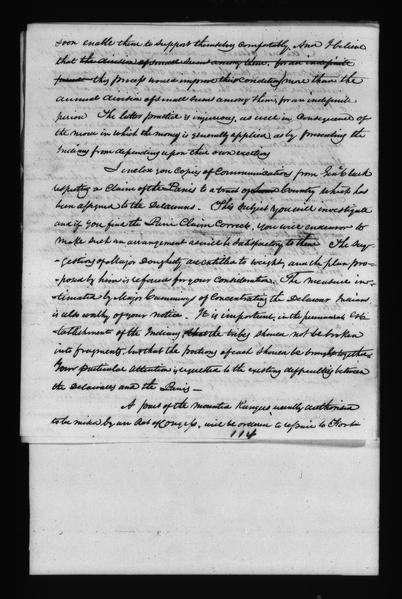 soon enable them to support themselves comfortably. And I believe
that the division of small sums among them, for an indefinite
period this precept would improve their condition more than the
annual division of small sums among them, for an indefinite
period. The latter practice is injurious, as well in consequence of
the manner in which the money is generally applied as by preventing the
Indians from depending upon their own exertions
I enclose you Copies of Communications from Genl Clark
respecting a Claim of the Panis to a tract of Country which has
been assigned to the Delawares. This subject you will investigate
and if you find the Pani Claim Correct, you will endeavor to
make such an arrangement as will be satisfactory to them. The sug-
gestions of Major Dougherty are entitled to weight, and the plan pro-
posed by him is referred for your consideration. The measure in-
timated by Major Cummings of Concentrating the Delaware Indians
is also worthy of your notice. It is important, in the permanent Est-
tablishment of the Indians that the tribes should not be broken
into fragments, but that the portions of each should be brought together
Your particular Attention is requested to the existing difficulties between
the Delawares and the Panis —
A part of the mounted Rangers recently authorised
to be raised by an Act of Congress, will be ordered to repair to Fort
114